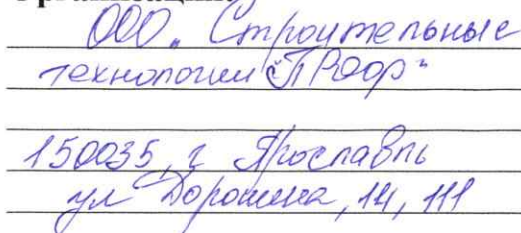 Организация
ООО „ Строительные
технологии "ПРоф"
150035, г Ярославль
ул Дорожная, 14, 111